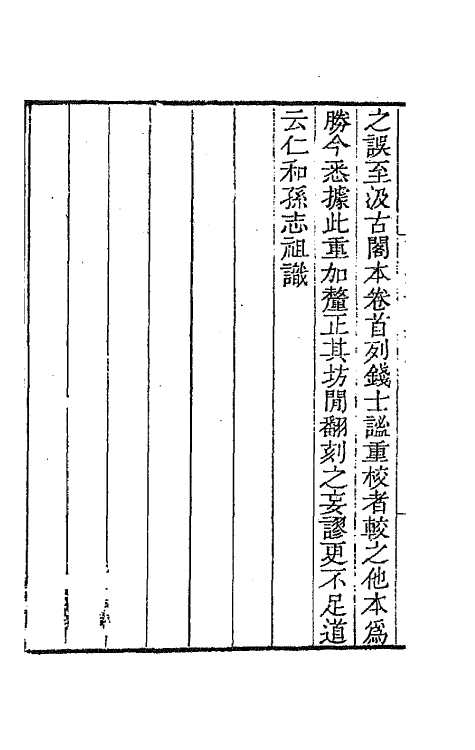 之誤至汲古閣本卷首列錢士謐重校者較之他本爲
勝今悉據此重加釐正其坊閒翻刻之妄謬更不足道
云仁和孫志祖識